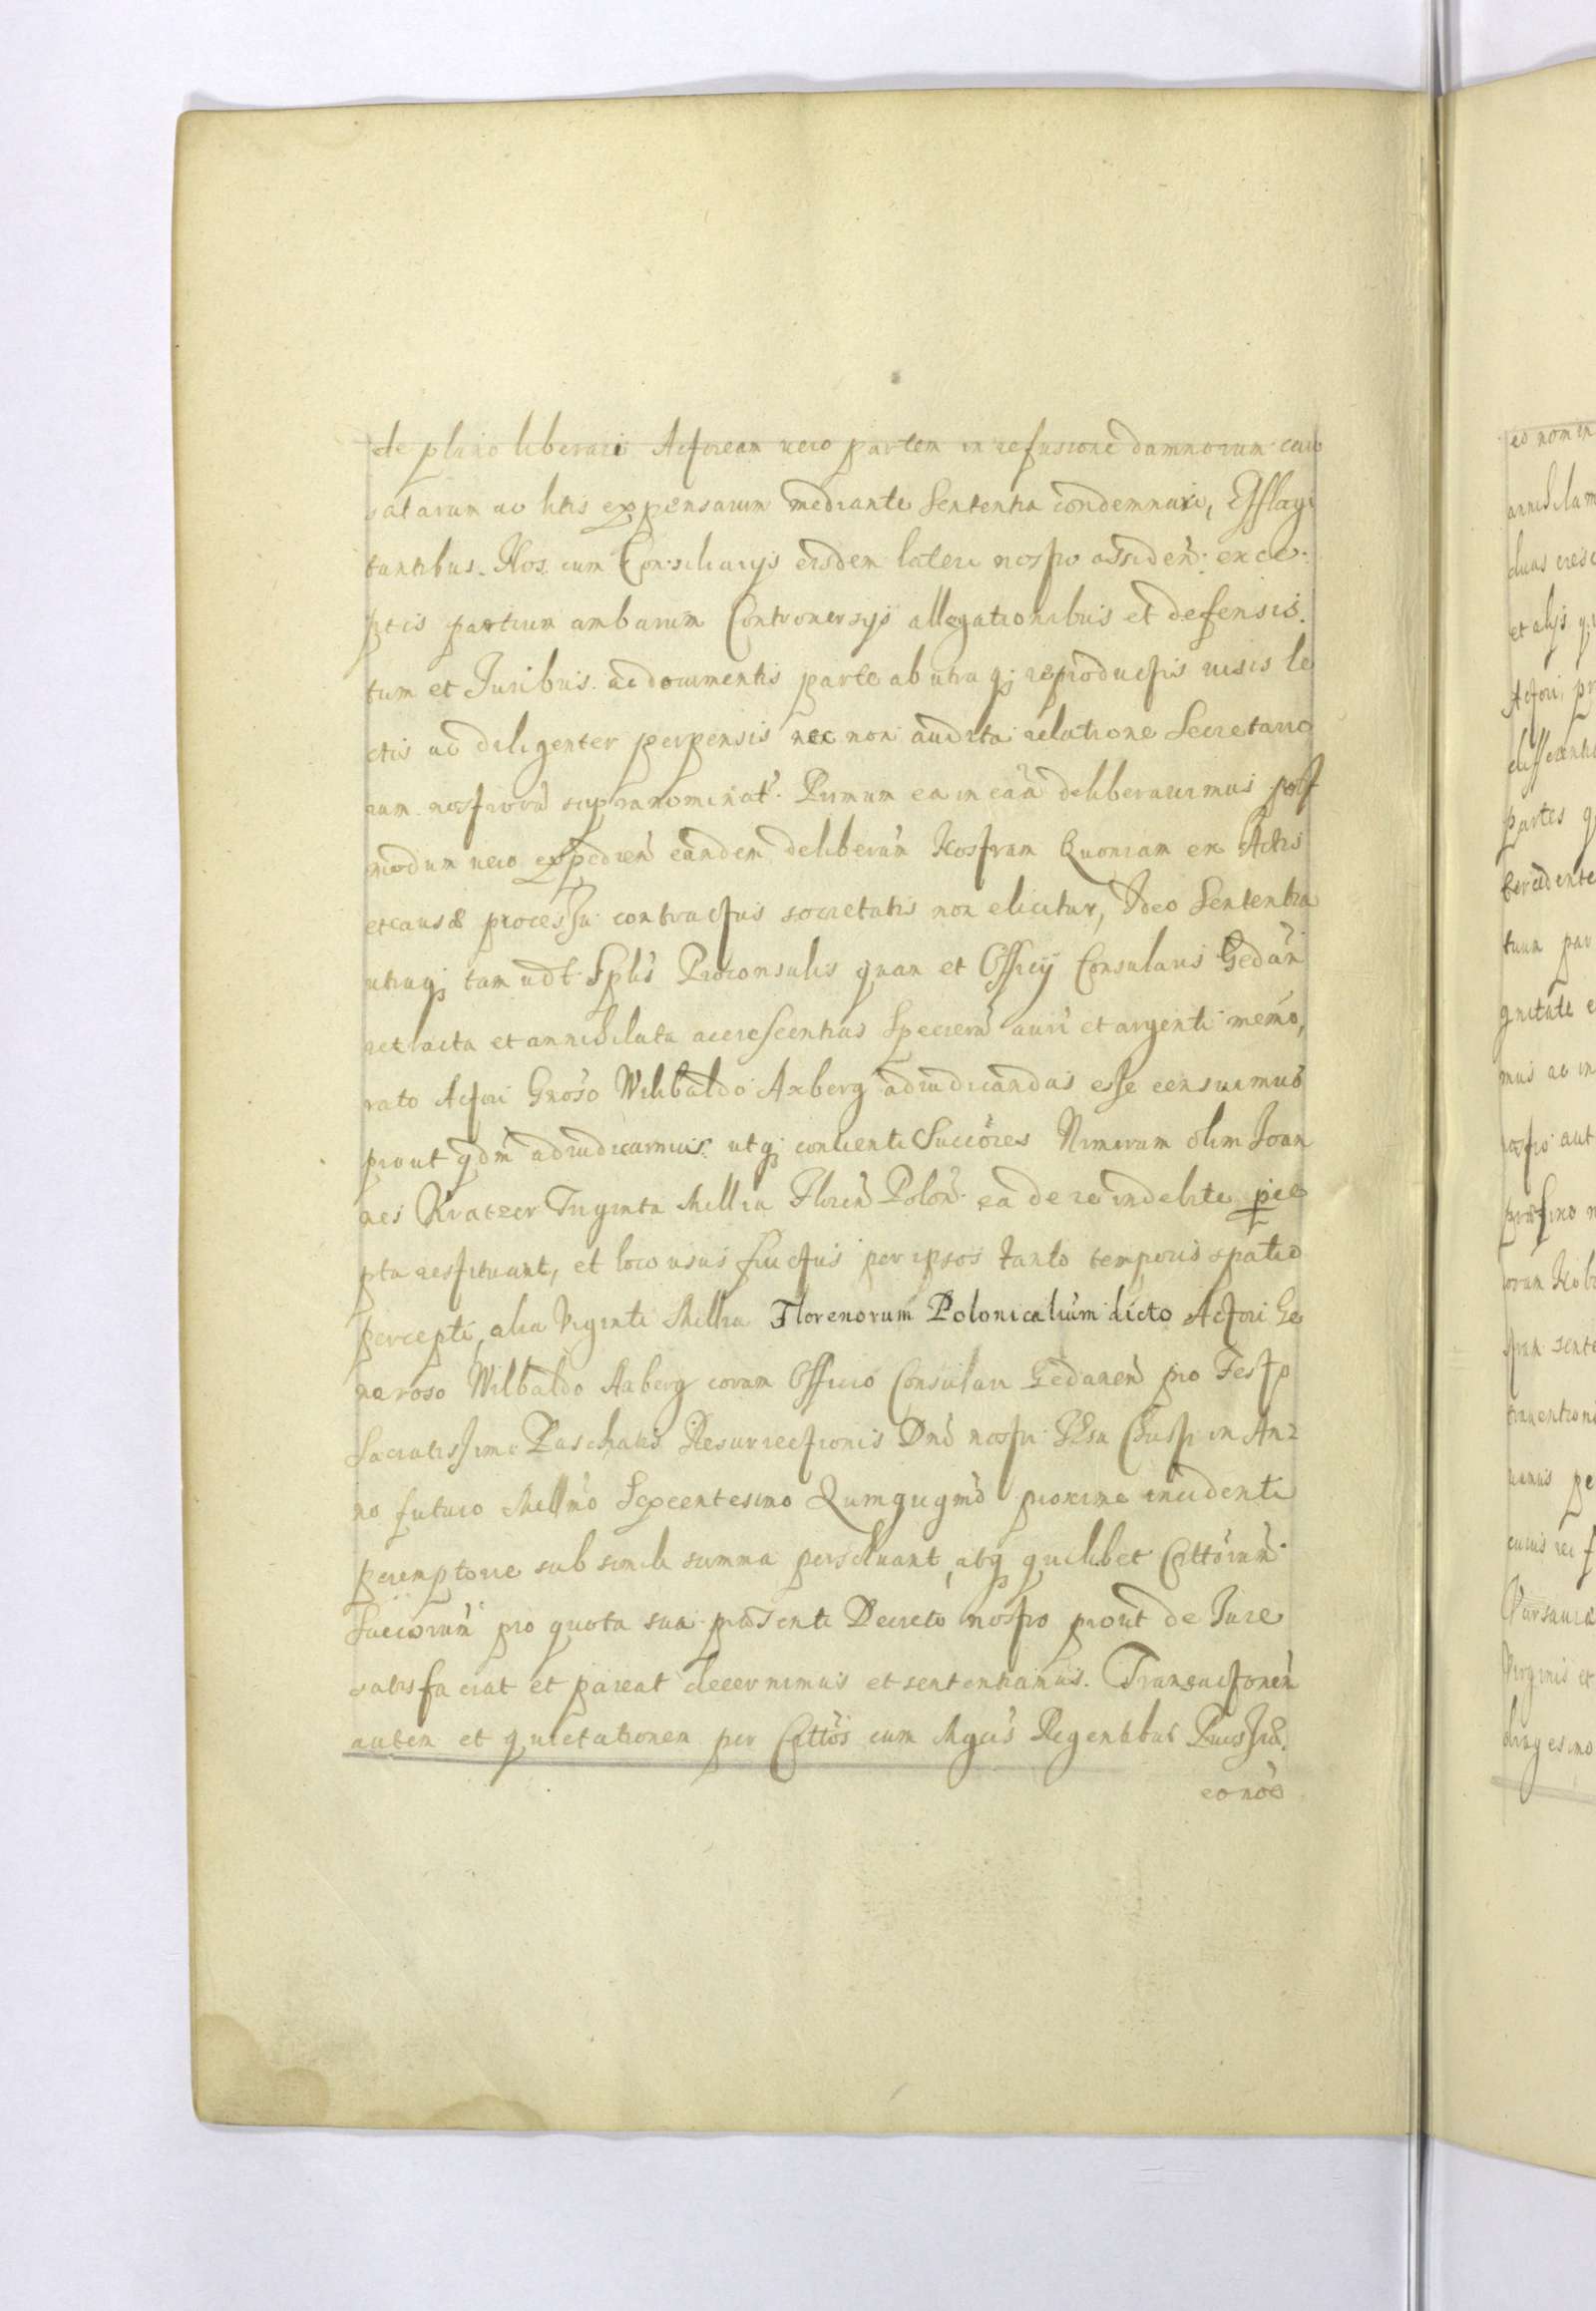 de plano liberari Actoream uero partem in refusione damnorum cau
satarum ac litis expensarum mediante Sententia condemnari, Efflagi
tantibus. Nos cum Consiliarijs eisdem lateri nostro assiden̄. exce
ptis partium ambarum Controuersijs allegationibus et defensis.
tum et Juribus ac documentis parte ab utraq; reproductis uisis le
ctis ac diligenter perpensis nec non audita relatione Secretario
rum nostrorū supranominat̄. Primum ea in cāā deliberauimus post
modum uero expedien̄ eandem deliberān Nostram Quoniam ex Actis
et causæ processu contractus societatis non elicitur, Ideo Sententia
utraq; tam udt Splis Proconsulis quam et Officij Consularis Gedan̄
retracta et annihilata accrescentias Specierū auri et argenti memo,
rato Actori Gnoso Wilibaldo Axberg adiudicandas esse censuimus
prout qdm̄ adiudicamus. utq; conuenti Succōres Nimirum olim Joan
nes Kratzer Triginta Millia Floren̄ Polon̄. ea de re indebite perce
pta restituant, et loco usus fructus per ipsos tanto temporis spatio
percepti, alia Viginti Millia Florenorum Polonicaliūm dicto Actori Ge
neroso Wilbaldo Axberg coram Officio Consulari Gedanen̄ pro Festo
Sacratissimi Paschatis Resurrectionis Dnī nostri IEsu Christi in An
no futuro Mill̄mo Sexcentesimo Quinquagmō proxime incidenti
peremptorie sub simili summa persoluant, atq; quilibet Cittōrum
Succōrum pro quota sua præsenti Decreto nostro prout de Jure
satisfaciat et pareat decernimus et sententiamus. Transactionen̄
autem et quietationem per Cittōs cum Mgcis Regentibus Prussiæ.
eo nōe

eo nomin
annihilam
duas cresc
et alijs q
Actori pr
differenti
partes q
tercedente
tuum par
gnitate e
mus ac in
nostro aut
stram sente
nanuis pe
cuius rei f
Virginis et